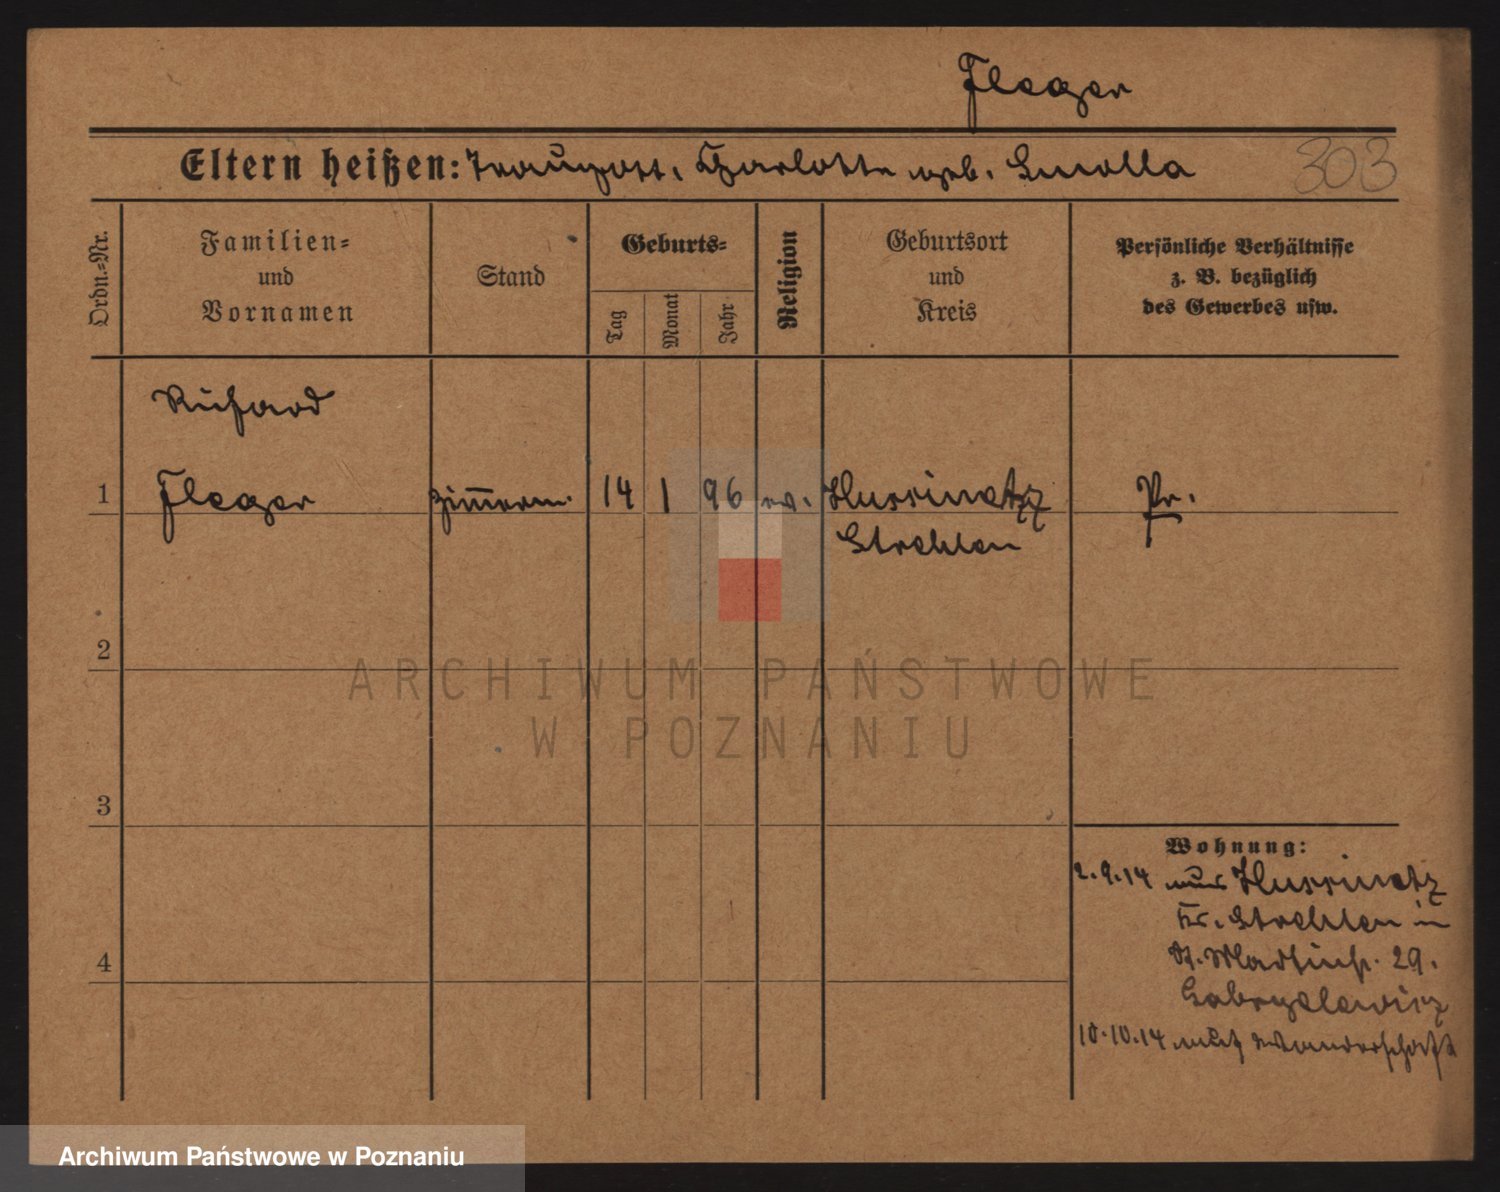 Fleger
Eltern heißen: Traugott, Charlotte geb. Smolla 303
Ordn.=Nr.
Familien=
und
Vornamen
Stand
Geburts=
Tag
Monat
Jahr
Religion
Geburtsort
und
Kreis
Persönliche Verhältnisse
z. B. bezüglich
des Gewerbes usw.
Richard
1 Fleger Zimmerm. 14 1 96 ev. Hussinetz Pr.
Strehlen
2
ARCHIWUM PAŃSTWOWE
W POZNANIU
3
Wohnung:
2.9.14 aus Hussinetz
Kr. Strehlen in
St. Martinstr. 29.
Gabryelewicz
4
10.10.14 auf Wanderschaft
Archiwum Państwowe w Poznaniu